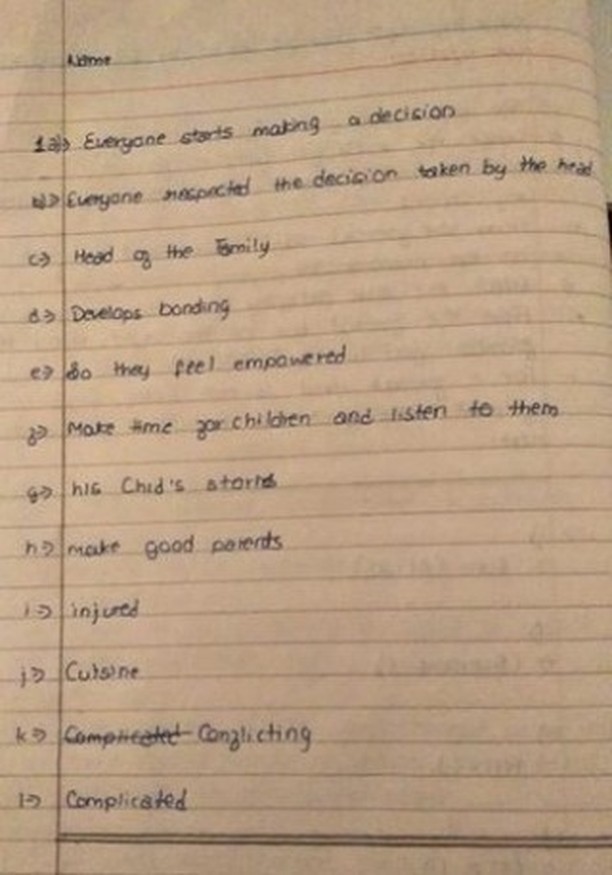 Name
1a)> Everyone starts making a decision
b)> Everyone respected the decision taken by the head
c> Head of the Family
d> Develops bonding
e> So they feel empowered
f> Make time for children and listen to them
g> his Chid's
h> make good parents
i> injured
j> Cuisine
k> Complicated Conflicting
l> Complicated